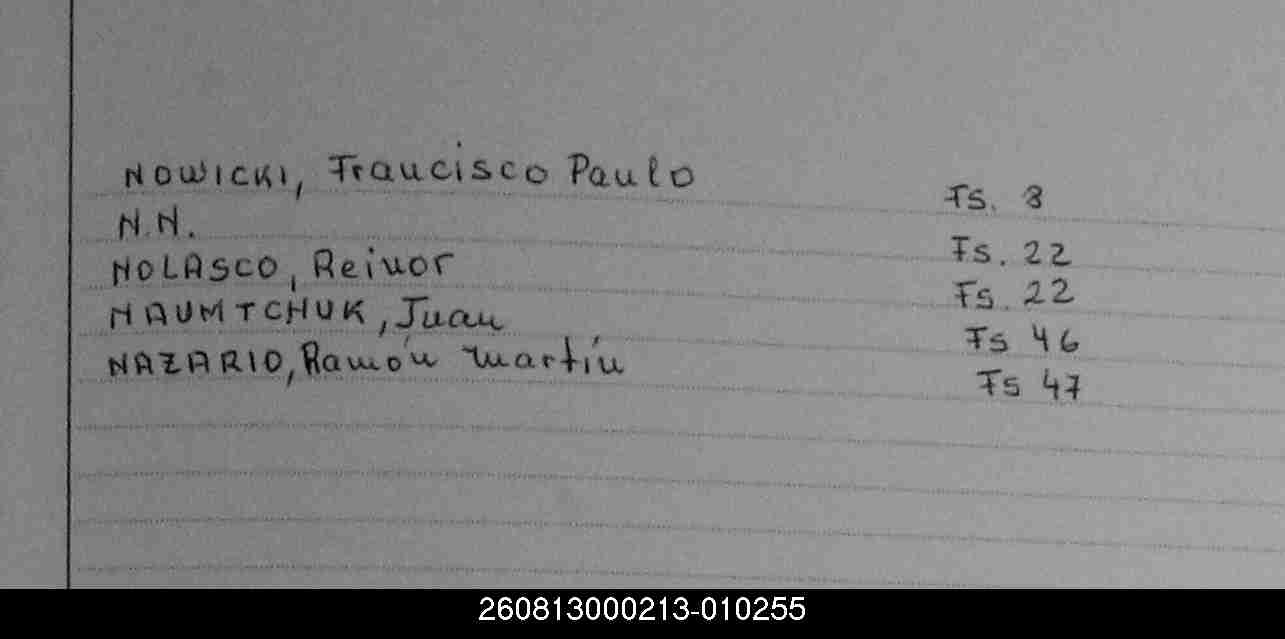 NOWICKI, Francisco Paulo Fs. 8
N.N. Fs. 22
NOLASCO, Reinor Fs. 22
NAUMTCHUK, Juan Fs 46
NAZARIO, Ramón Martín Fs 47
260813000213-010255